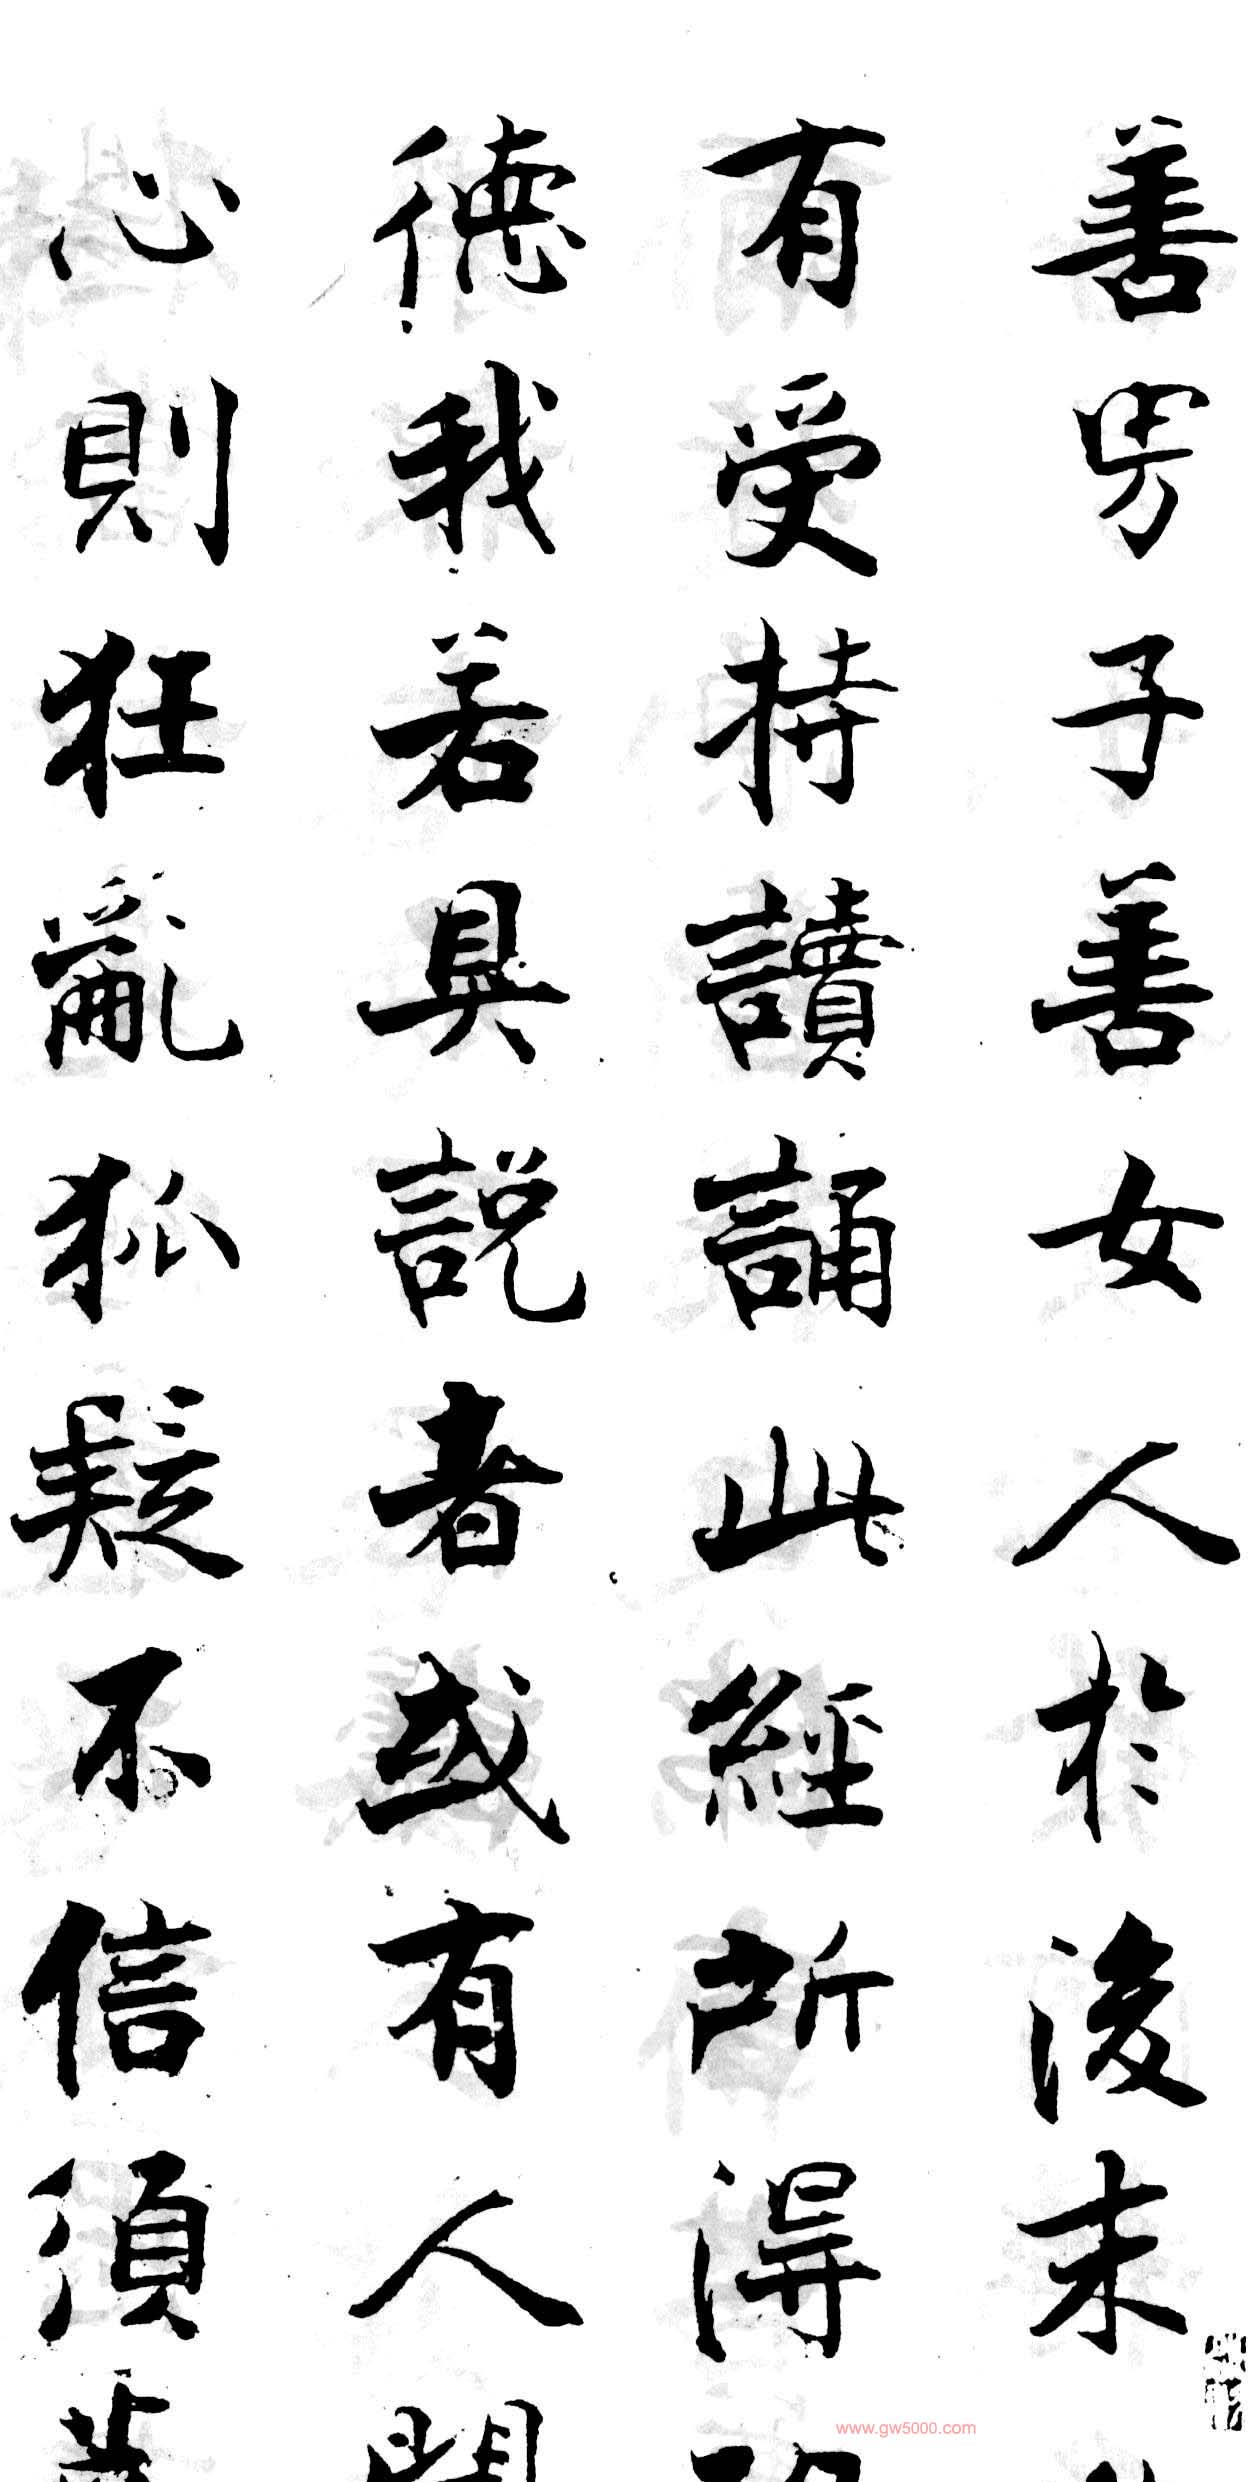 善男子善女人於後末
有受持讀誦此經所得
德我若具説者或有人
心則狂亂狐疑不信須
www.gw5000.com